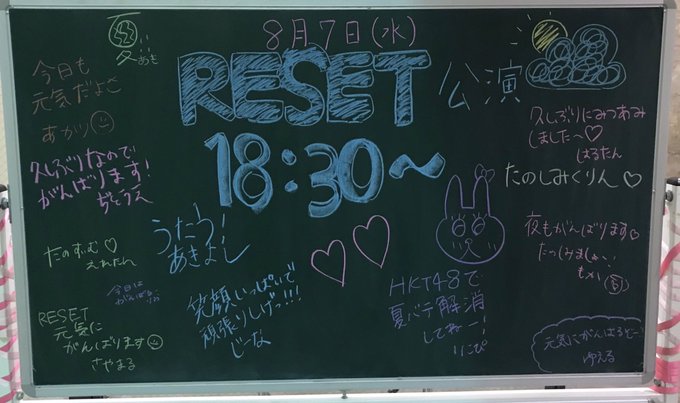 8月7日(水)
RESET
公演
18:30〜
今日も
元気だよさ
あかり
久しぶりなので
がんばります!
たのすぃむ♡
えれたん
今日は
RESET
元気に
がんばります
さやまる
うたう!
あきよし
笑顔いっぱいで
頑張りしげっ!!!
じーな
HKT48で
夏バテ解消
してねー!
りこぴ
久しぶりにみつあみ
しました〜♡
はるたん
たのしみくりん♡
夜もがんばります
たっしみましょい
もめい
元気にがんばるぞー!
ゆえる